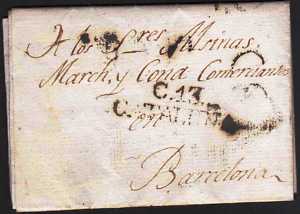 A los Sres Alsinas
March, y Cona Comerciantes
C.13
CATALUÑA
en
Barcelona